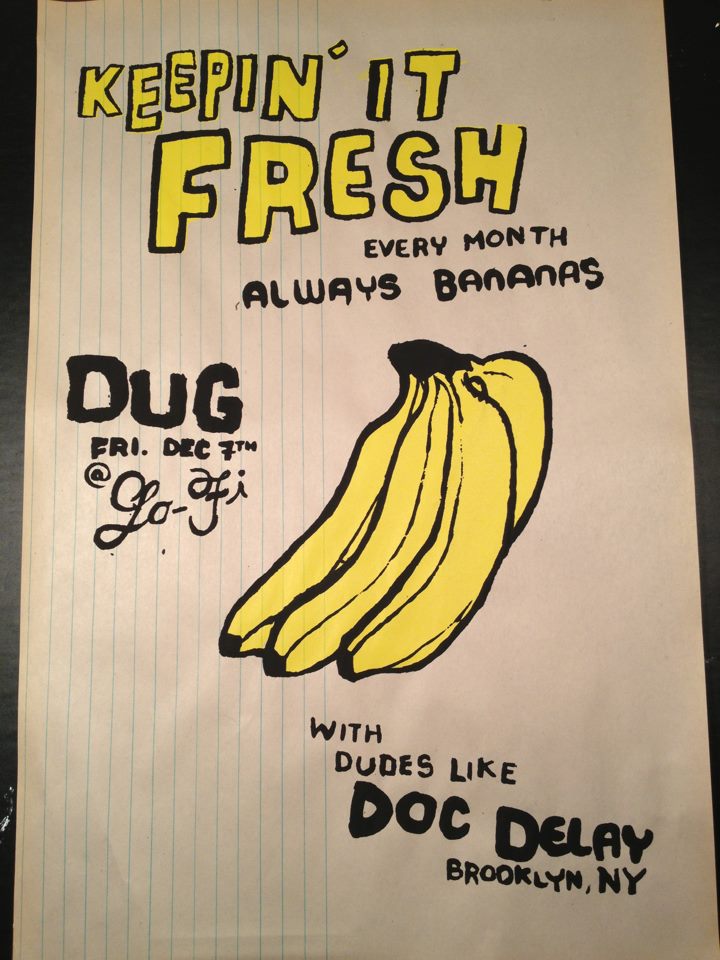 KEEPIN' IT
FRESH
EVERY MONTH
ALWAYS BANANAS
DUG
FRI. DEC 7TH
@ Lo-Fi
WITH
DUDES LIKE
DOC DELAY
BROOKLYN, NY